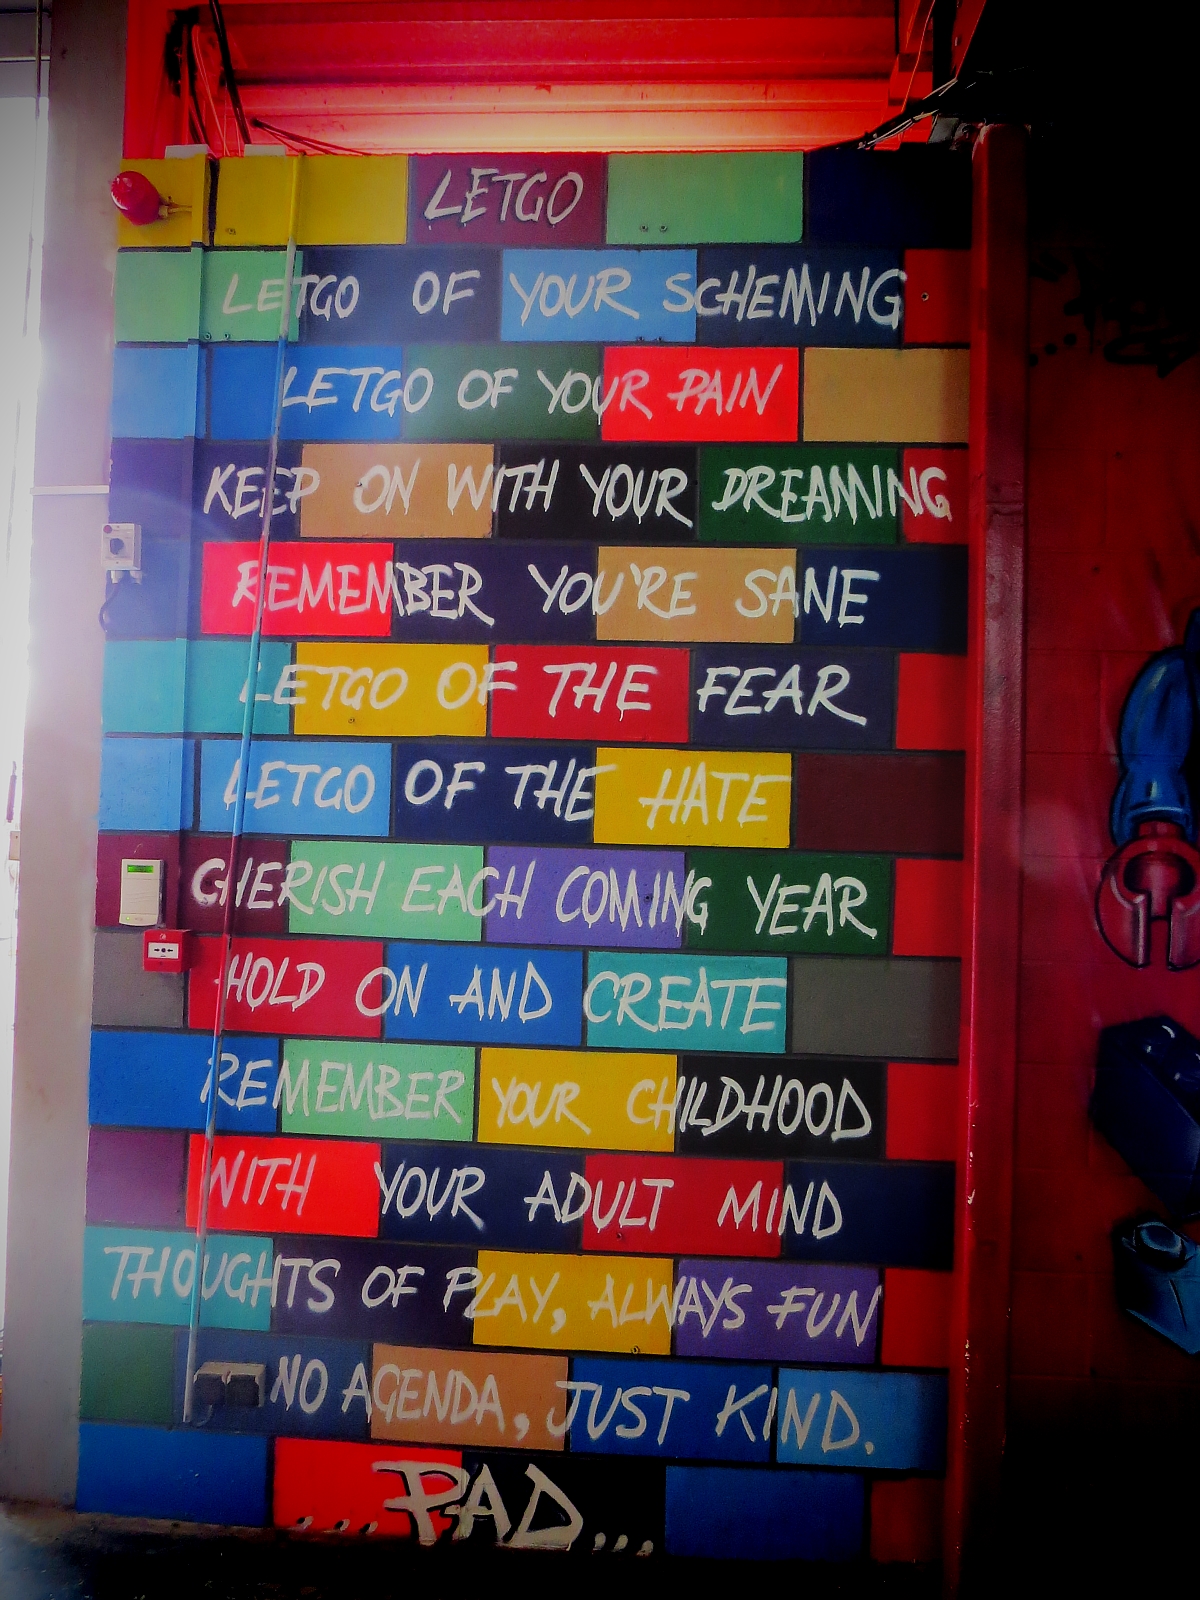 LETGO
LETGO OF YOUR SCHEMING
LETGO OF YOUR PAIN
KEEP ON WITH YOUR DREAMING
REMEMBER YOU'RE SANE
LETGO OF THE FEAR
LETGO OF THE HATE
CHERISH EACH COMING YEAR
HOLD ON AND CREATE
REMEMBER YOUR CHILDHOOD
WITH YOUR ADULT MIND
THOUGHTS OF PLAY, ALWAYS FUN
NO AGENDA, JUST KIND.
...PAD...